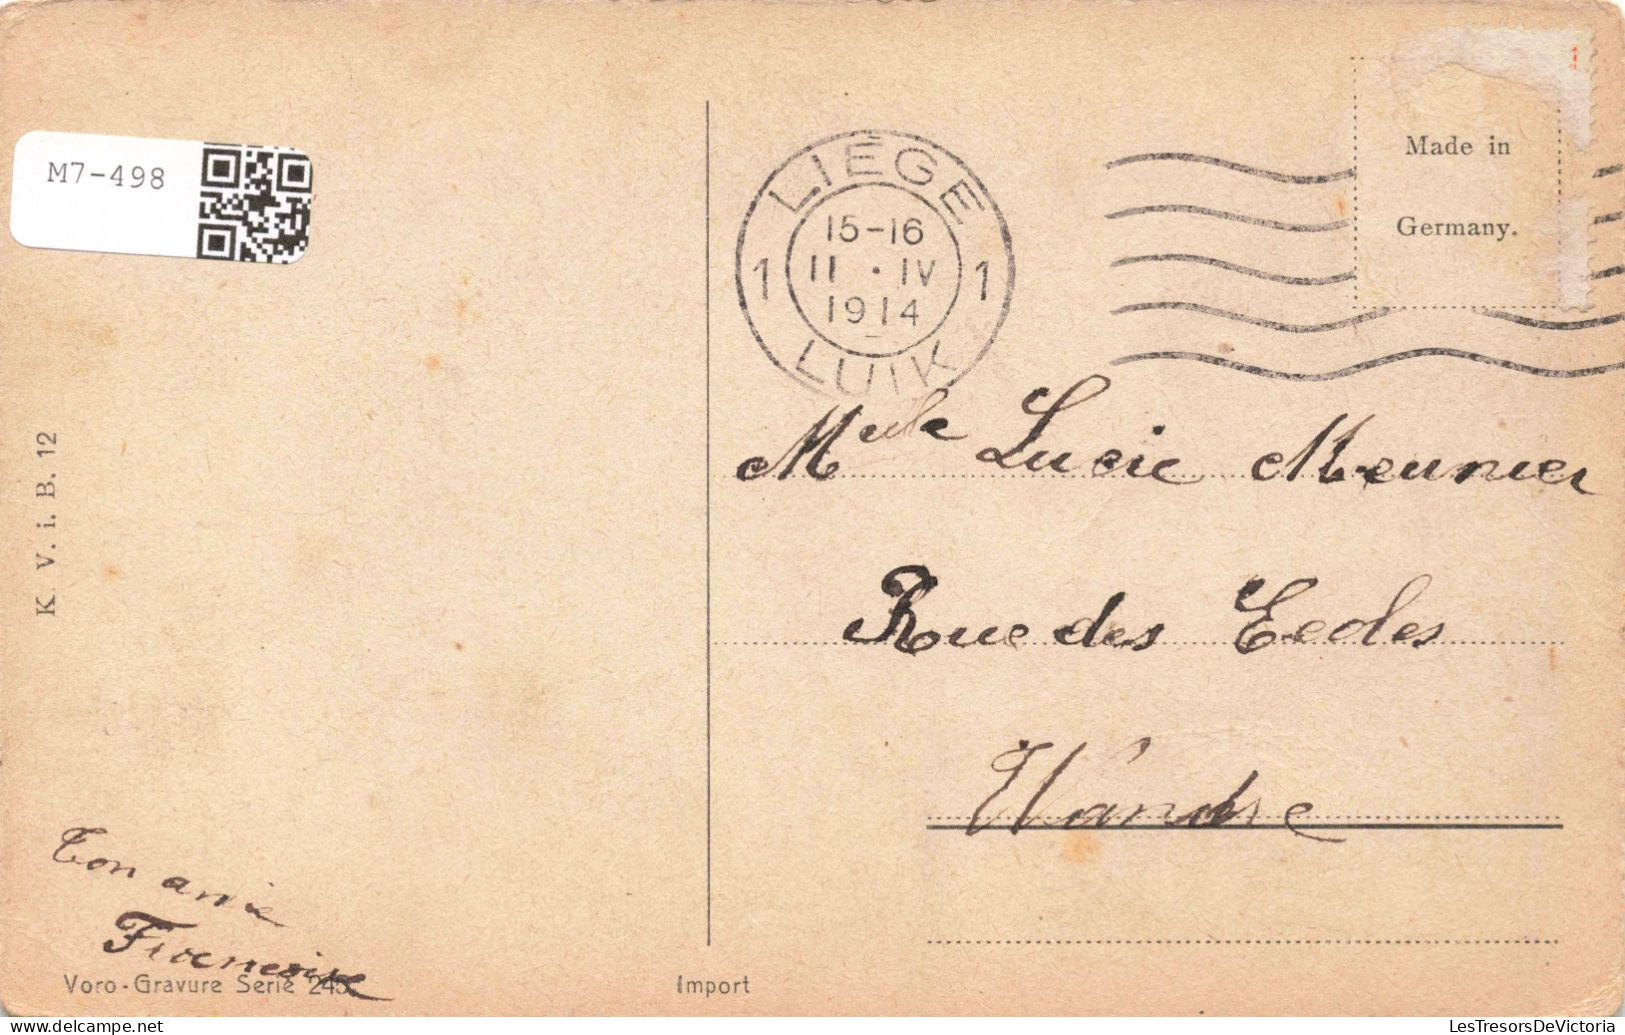 M7-498
LIÉGE
15-16
1 11 · IV 1
1914
LUIK
Made in
Germany.
Melle Lucie Meunier
Rue des Ecoles
Wandre
K. V. i. B. 12
Ton amie
Francoise
Voro-Gravure Serie 245
Import
LesTresorsDeVictoria